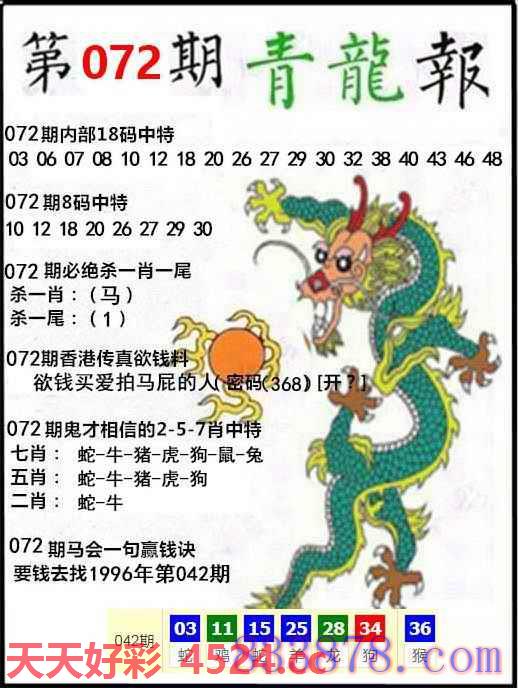 第072期青龍報
072期内部18码中特
03 06 07 08 10 12 18 20 26 27 29 30 32 38 40 43 46 48
072期8码中特
10 12 18 20 26 27 29 30
072 期必绝杀一肖一尾
杀一肖：（马）
杀一尾：（1）
072期香港传真欲钱料
欲钱买爱拍马屁的人(密码(368) [开？]
072期鬼才相信的2-5-7肖中特
七肖： 蛇-牛-猪-虎-狗-鼠-兔
五肖： 蛇-牛-猪-虎-狗
二肖： 蛇-牛
072 期马会一句赢钱诀
要钱去找1996年第042期
042期 03 11 15 25 28 34 36
蛇 鸡 蛇 羊 龙 狗 猴
天天好彩 4524.cc
878.com